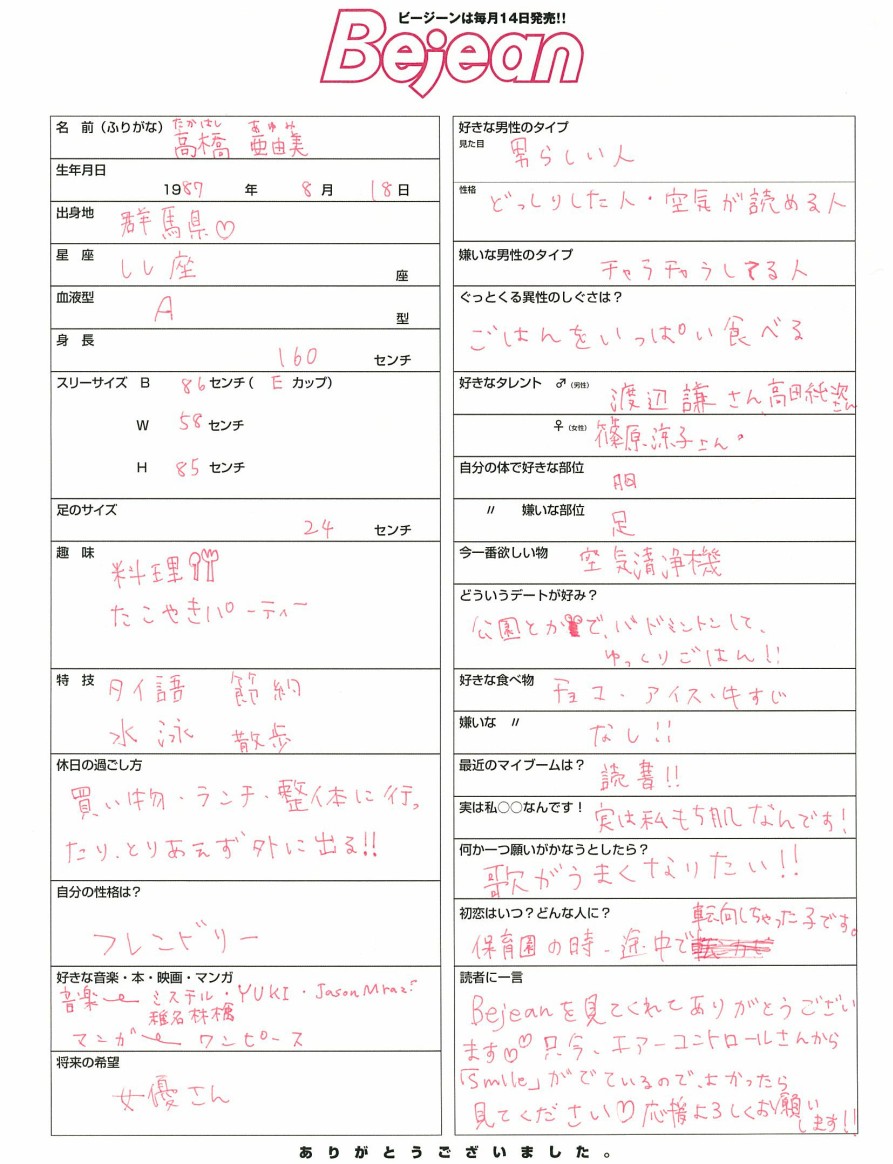 ビージーンは毎月14日発売!!
Bejean
名　前（ふりがな） たかはし あゆみ
高橋 亜由美
生年月日
1987 年 8 月 18 日
出身地
群馬県♡
星　座
しし座 座
血液型
A 型
身　長
160 センチ
スリーサイズ B 86 センチ ( E カップ)
W 58 センチ
H 85 センチ
足のサイズ
24 センチ
趣　味
料理
たこやきパーティー
特　技 タイ語 節約
水泳 散歩
休日の過ごし方
買い物・ランチ・整体に行っ
たり、とりあえず外に出る!!
自分の性格は？
フレンドリー
好きな音楽・本・映画・マンガ
音楽 ミスチル・YUKI・Jason Mraz
椎名林檎
マンガ ワンピース
将来の希望
女優さん
好きな男性のタイプ
見た目 男らしい人
性格 どっしりした人・空気が読める人
嫌いな男性のタイプ
チャラチャラしてる人
ぐっとくる異性のしぐさは？
ごはんをいっぱい食べる
好きなタレント ♂（男性） 渡辺謙さん、高田純次さん
♀（女性） 篠原涼子さん。
自分の体で好きな部位
胸
〃　嫌いな部位
足
今一番欲しい物 空気清浄機
どういうデートが好み？
公園とかで、バドミントンして、
ゆっくりごはん!!
好きな食べ物 チョコ・アイス・牛すじ
嫌いな 〃
なし!!
最近のマイブームは？ 読書!!
実は私○○なんです！ 実は私もち肌なんです!
何か一つ願いがかなうとしたら？
歌がうまくなりたい!!
初恋はいつ？どんな人に？ 転向しちゃった子です。
保育園の時、途中で
読者に一言
Bejeanを見てくれてありがとうござい
ます♡♡只今、エアーコントロールさんから
「Smile」がでているので、よかったら
見てください♡応援よろしくお願い
します!!
ありがとうございました。